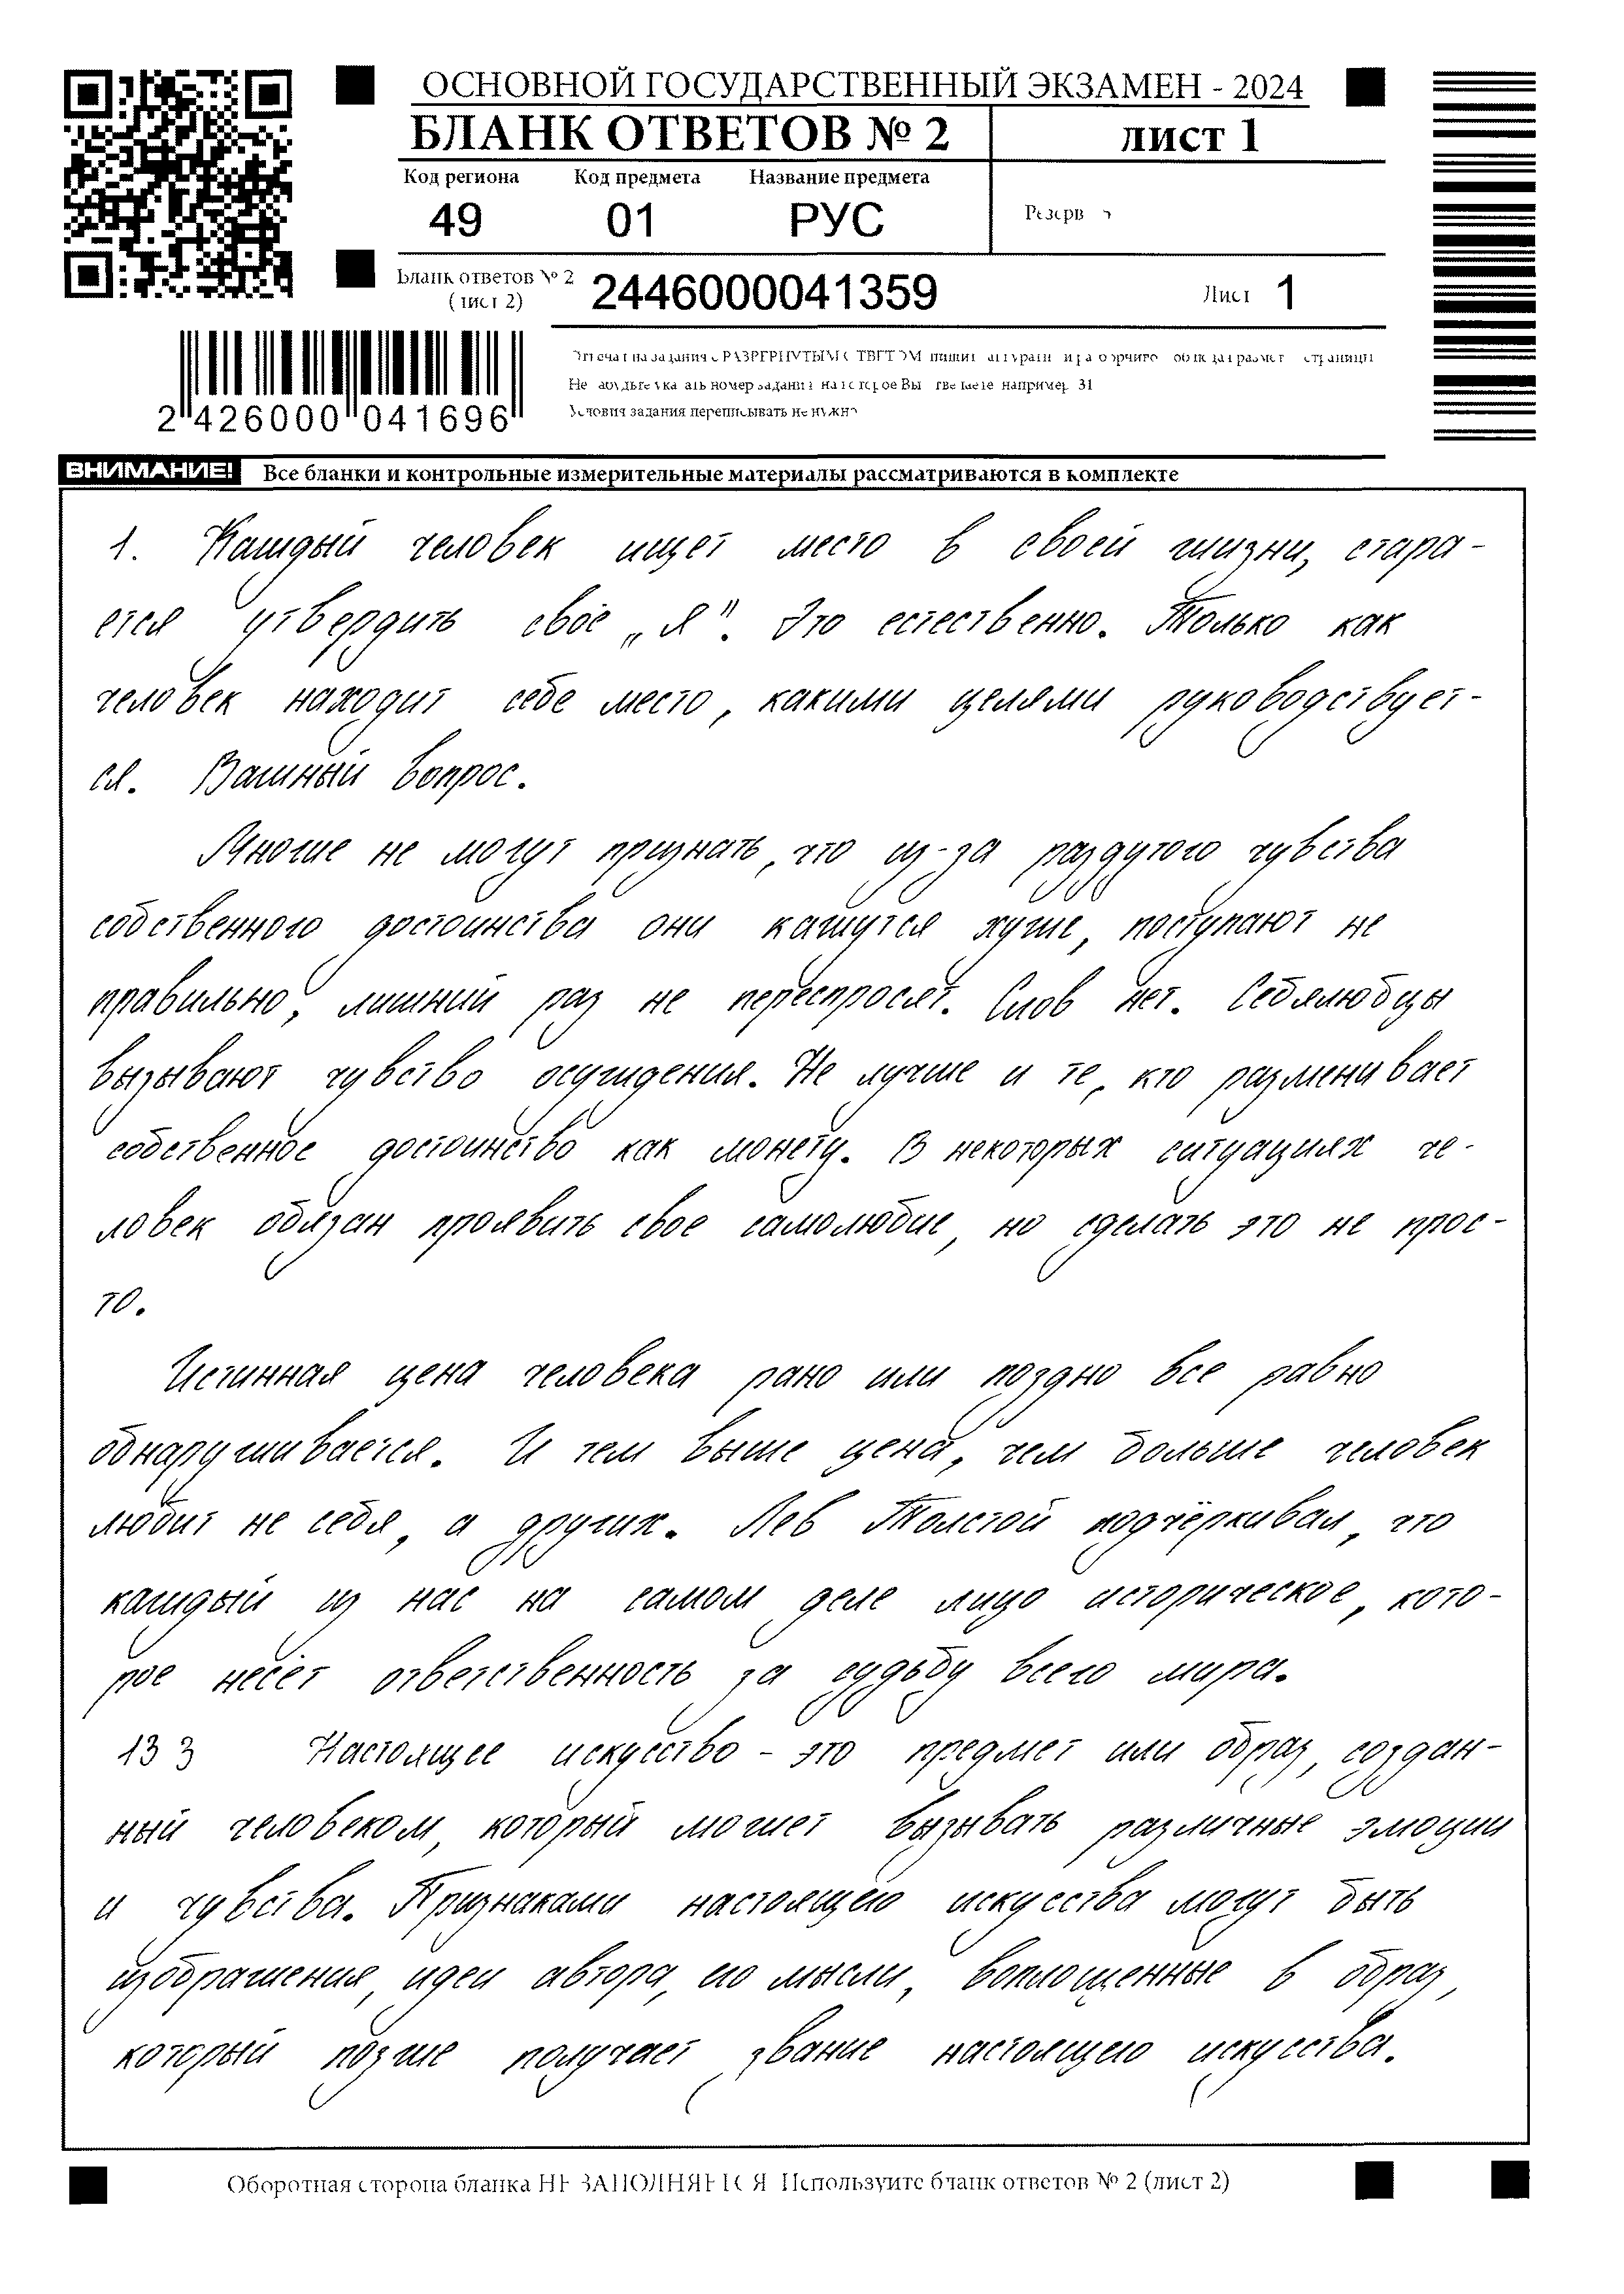 ОСНОВНОЙ ГОСУДАРСТВЕННЫЙ ЭКЗАМЕН - 2024
БЛАНК ОТВЕТОВ № 2
ЛИСТ 1
Код региона Код предмета Название предмета
49 01 РУС
Резерв
Бланк ответов № 2
(лист 2)
2446000041359
Лист 1
2 426000 041696
Условия задания переписывать не нужно
ВНИМАНИЕ! Все бланки и контрольные измерительные материалы рассматриваются в комплекте
1. Каждый человек ищет место в своей жизни, стара-
ется утвердить своё „Я". Это естественно. Только как
человек находит себе место, какими целями руководствует-
ся. Важный вопрос.
Многие не могут признать, что из-за раздутого чувства
собственного достоинства они кажутся хуже, поступают не
правильно, лишний раз не переспросят. Слов нет. Себялюбцы
вызывают чувство осуждения. Не лучше и те, кто разменивает
собственное достоинство как монету. В некоторых ситуациях че-
ловек обязан проявить свое самолюбие, но сделать это не прос-
то.
Истинная цена человека рано или поздно все равно
обнаруживается. И тем выше цена, чем больше человек
любит не себя, а других. Лев Толстой подчёркивал, что
каждый из нас на самом деле лицо историческое, кото-
рое несёт ответственность за судьбу всего мира.
13 3 Настоящее искусство - это предмет или образ, создан-
ный человеком, который может вызывать различные эмоции
и чувства. Признаками настоящего искусства могут быть
изображения, идеи автора, его мысли, воплощенные в образ,
который позже получает звание настоящего искусства.
Оборотная сторона бланка НЕ ЗАПОЛНЯЕТСЯ. Используйте бланк ответов № 2 (лист 2)